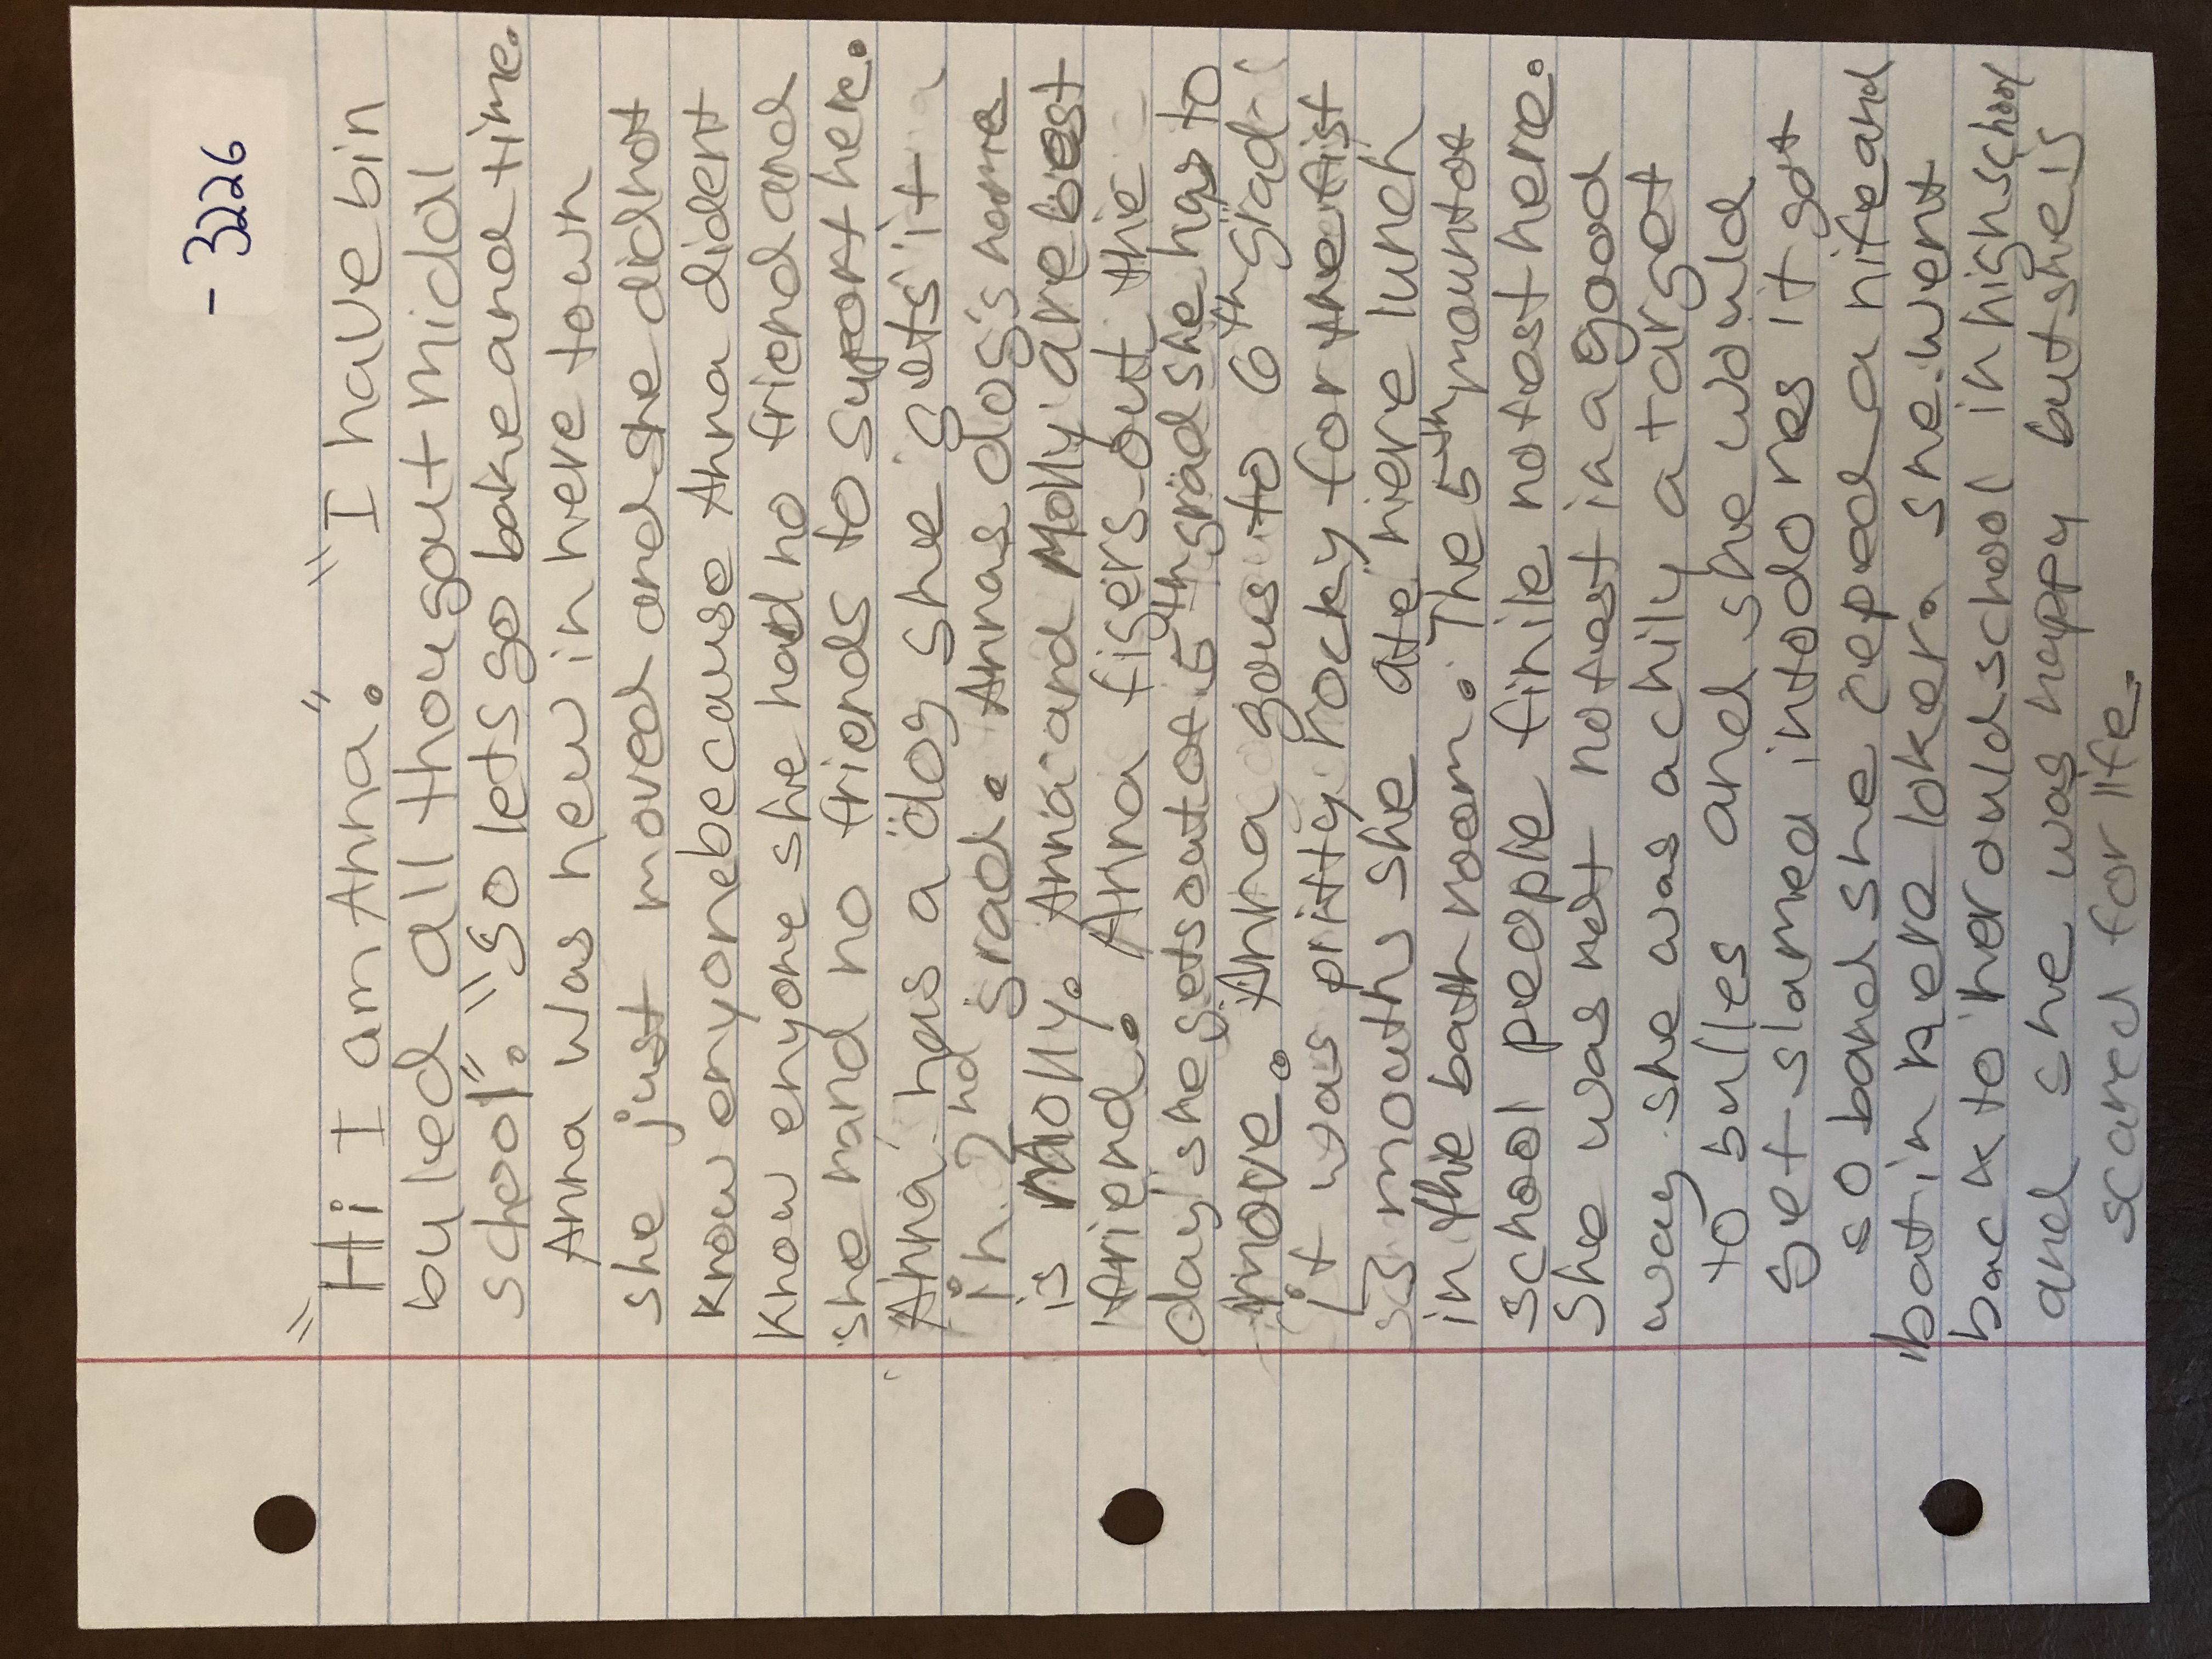 - 3226
"Hi I am Anna". "I have bin
buled all thougout midal
school". "So lets go bake and time.
Anna was new in here town
she just moved and she did not
know enyone because Anna dident
know enyone she had no friend and
she hand no friends to suport here.
Anna has a dog she gets it
in 2nd grad. Annas dog's name
is Molly. Anna and Molly are best
friend. Anna figers out the
day she gets out of 5th grad she has to
move. Anna gous to 6th grad
it was pritty rocky for the fist
3 mouths she ate here lunch
in the bath room. The 5th mount of
school people finile notest here.
She was not notest in a good
way she was achily a target
to bulles and she would
get slamed into dores it got
so band she ceped a nife and
bat in here loker. she went
back to her ould school in high school
and she was happy but she is
scared for life.